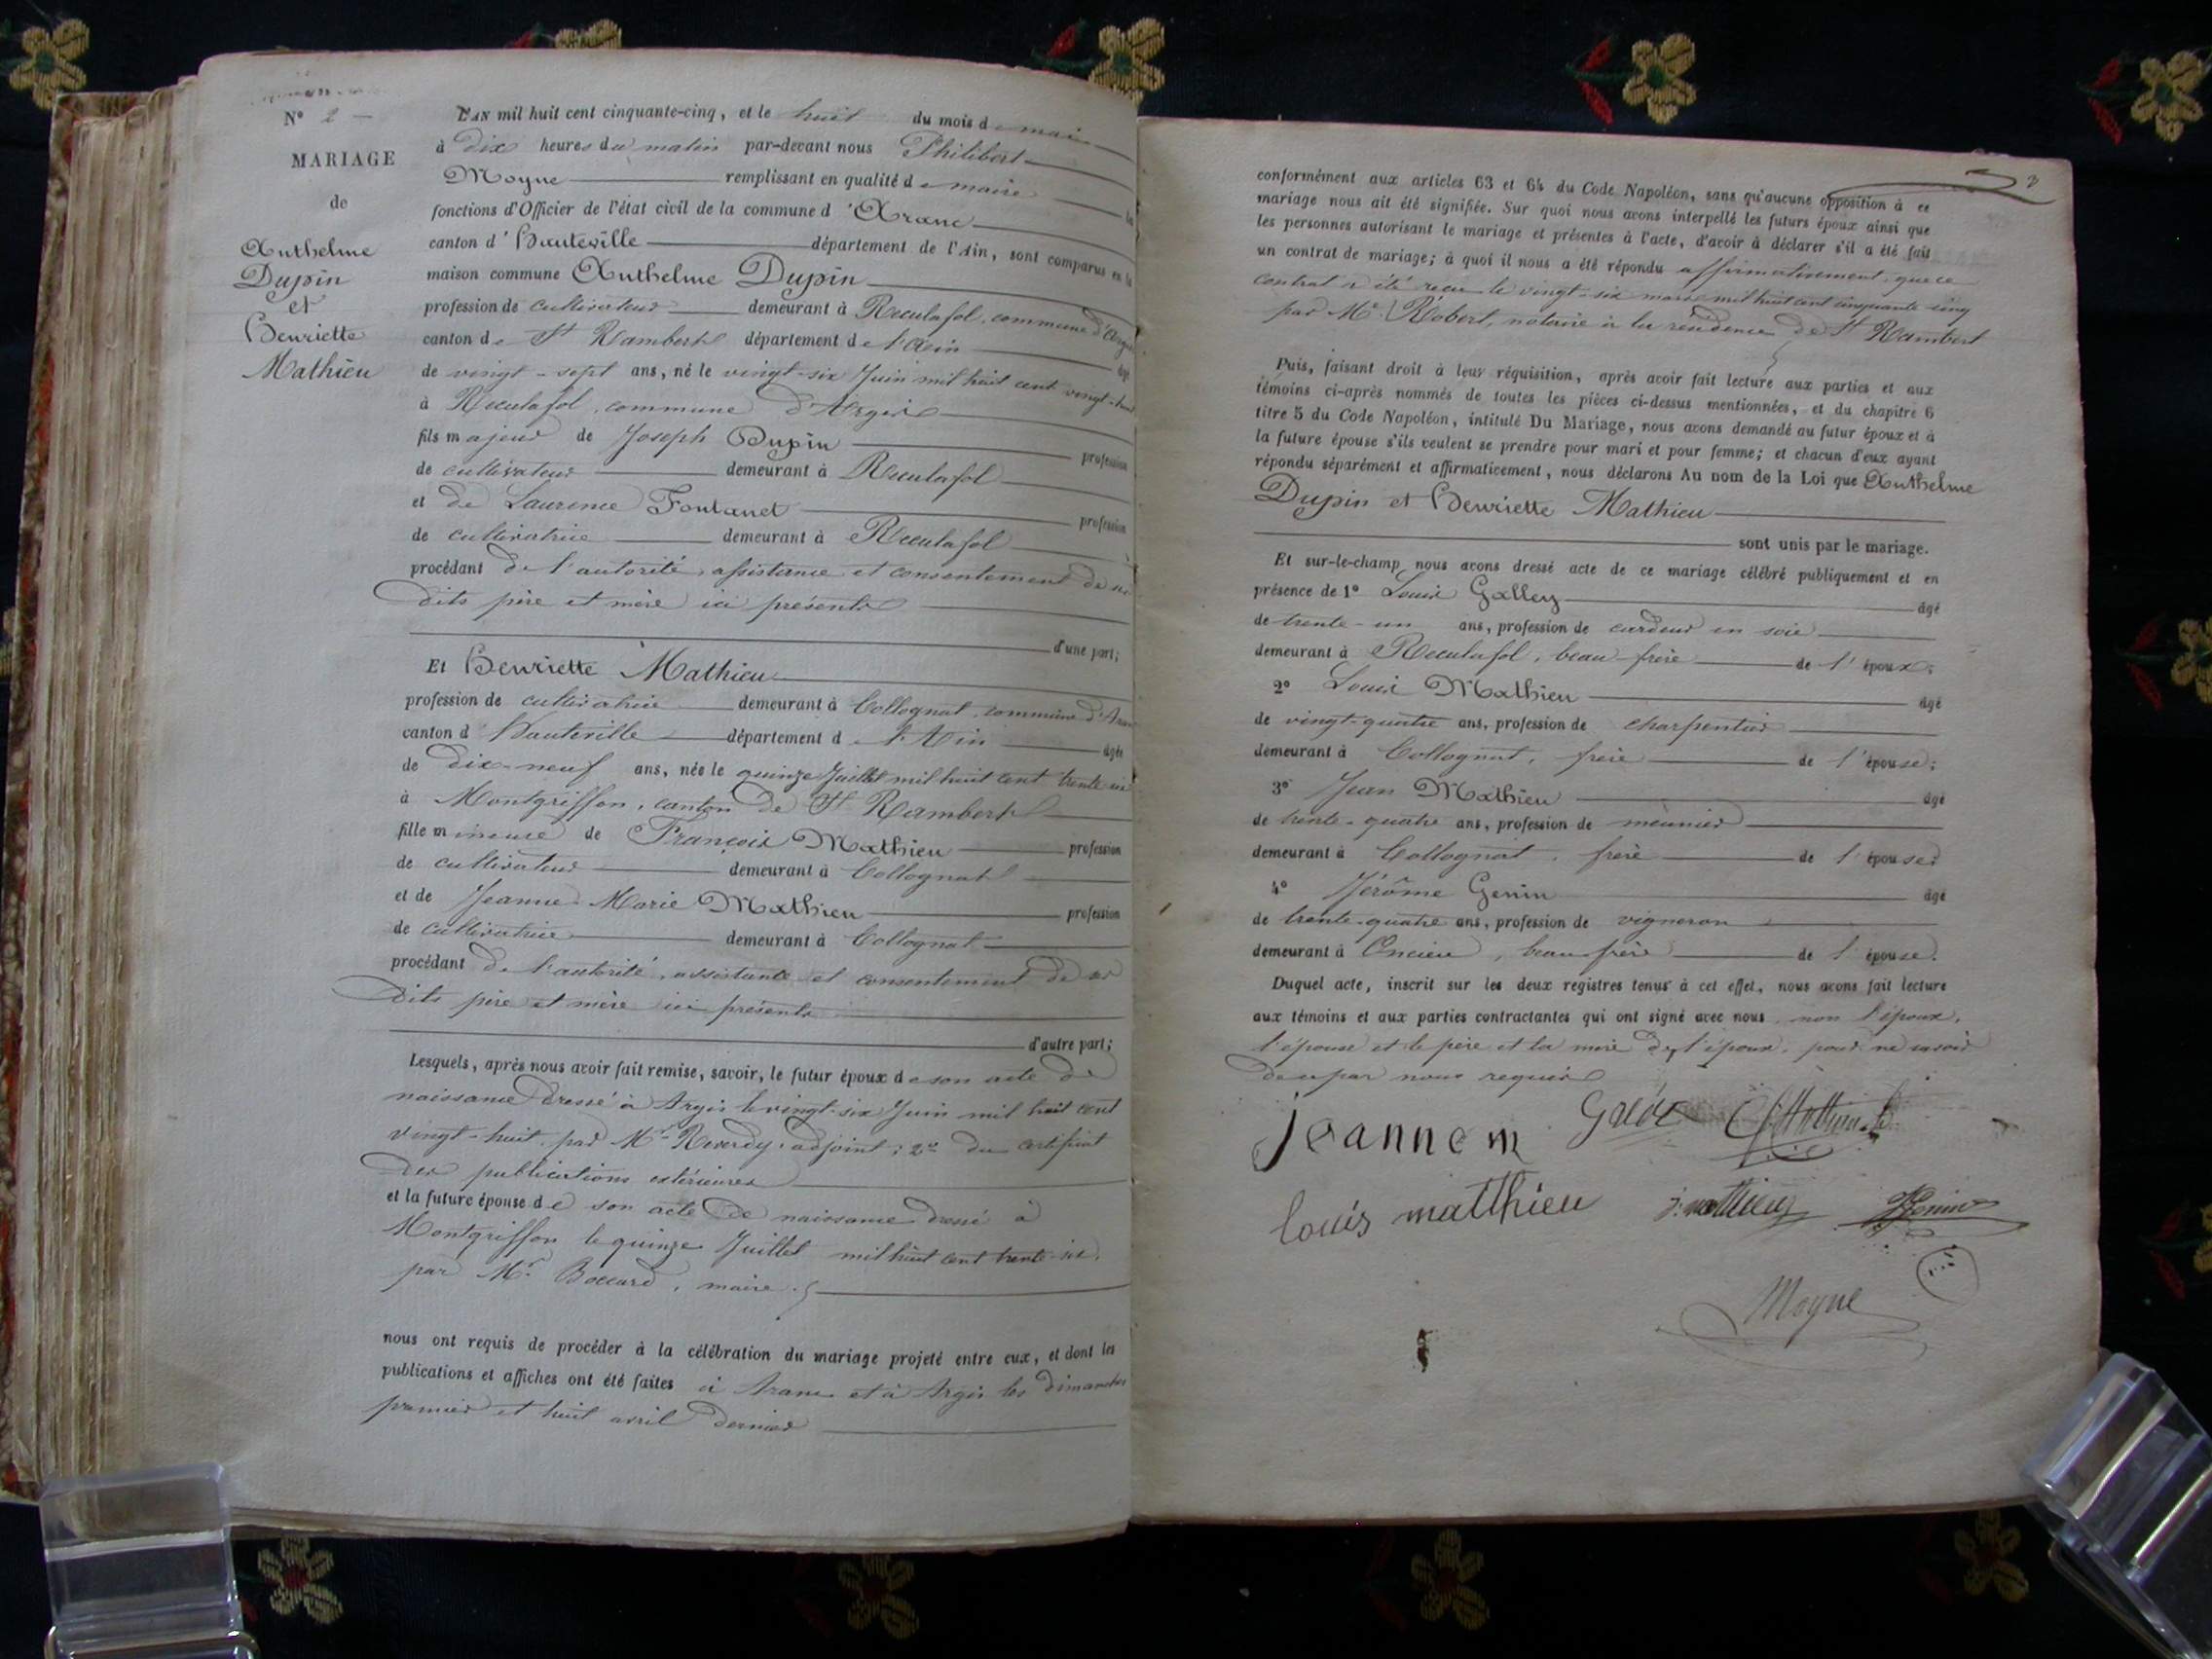 Nº 2 —
MARIAGE
de
Anthelme
Dupin
et
Henriette
Mathieu
L'AN mil huit cent cinquante-cinq, et le huit du mois de mai
à dix heures du matin par-devant nous Philibert
Moyne remplissant en qualité de maire
fonctions d'Officier de l'état civil de la commune d'Aranc
canton d'Hauteville département de l'Ain, sont comparus en la
maison commune Anthelme Dupin
profession de cultivateur demeurant à Reculafol, commune d'Argis
canton de St Rambert département de l'Ain âgé
de vingt-sept ans, né le vingt-six Juin mil huit cent vingt-huit
à Reculafol, commune d'Argis
fils majeur de Joseph Dupin profession
de cultivateur demeurant à Reculafol
et de Laurence Fontanet profession
de cultivatrice demeurant à Reculafol
procédant de l'autorité, assistance et consentement de ses
dits père et mère ici présents
d'une part;
Et Henriette Mathieu
profession de cultivatrice demeurant à Collognat, commune d'Aranc
canton d'Hauteville département de l'Ain âgée
de dix-neuf ans, née le quinze Juillet mil huit cent trente six
à Montgriffon, canton de St Rambert
fille mineure de François Mathieu profession
de cultivateur demeurant à Collognat
et de Jeanne-Marie Mathieu profession
de cultivatrice demeurant à Collognat
procédant de l'autorité, assistante et consentement de ses
dits père et mère ici présents
d'autre part;
Lesquels, après nous avoir fait remise, savoir, le futur époux de son acte de
naissance dressé à Argis le vingt-six Juin mil huit cent
vingt-huit par Mr Reverdy, adjoint; 2º du certificat
des publications extérieures
et la future épouse de son acte de naissance dressé à
Montgriffon le quinze Juillet mil huit cent trente-six,
par Mr Boccard, maire.
nous ont requis de procéder à la célébration du mariage projeté entre eux, et dont les
publications et affiches ont été faites à Aranc et à Argis les dimanches
premier et huit avril dernier
3
conformément aux articles 63 et 64 du Code Napoléon, sans qu'aucune opposition à ce
mariage nous ait été signifiée. Sur quoi nous avons interpellé les futurs époux ainsi que
les personnes autorisant le mariage et présentes à l'acte, d'avoir à déclarer s'il a été fait
un contrat de mariage; à quoi il nous a été répondu affirmativement, que ce
contrat a été reçu le vingt-six mars mil huit cent cinquante cinq
par Me Robert, notaire à la résidence de St Rambert
Puis, faisant droit à leur réquisition, après avoir fait lecture aux parties et aux
témoins ci-après nommés de toutes les pièces ci-dessus mentionnées, et du chapitre 6
titre 5 du Code Napoléon, intitulé Du Mariage, nous avons demandé au futur époux et à
la future épouse s'ils veulent se prendre pour mari et pour femme; et chacun d'eux ayant
répondu séparément et affirmativement, nous déclarons Au nom de la Loi que Anthelme
Dupin et Henriette Mathieu
sont unis par le mariage.
Et sur-le-champ nous avons dressé acte de ce mariage célébré publiquement et en
présence de 1º Louis Galley âgé
de trente-un ans, profession de cardeur en soie
demeurant à Reculafol, beau-frère de l'époux;
2º Louis Mathieu âgé
de vingt-quatre ans, profession de charpentier
demeurant à Collognat, frère de l'épouse;
3º Jean Mathieu âgé
de trente-quatre ans, profession de meunier
demeurant à Collognat, frère de l'épouse;
4º Jérôme Genin âgé
de trente-quatre ans, profession de vigneron
demeurant à Oncieu, beau-frère de l'épouse.
Duquel acte, inscrit sur les deux registres tenus à cet effet, nous avons fait lecture
aux témoins et aux parties contractantes qui ont signé avec nous, non l'époux,
l'épouse et le père et la mère de l'époux, pour ne savoir
de ce par nous requis
jeannem
louis matthieu j. mathieu Genin
Moyne